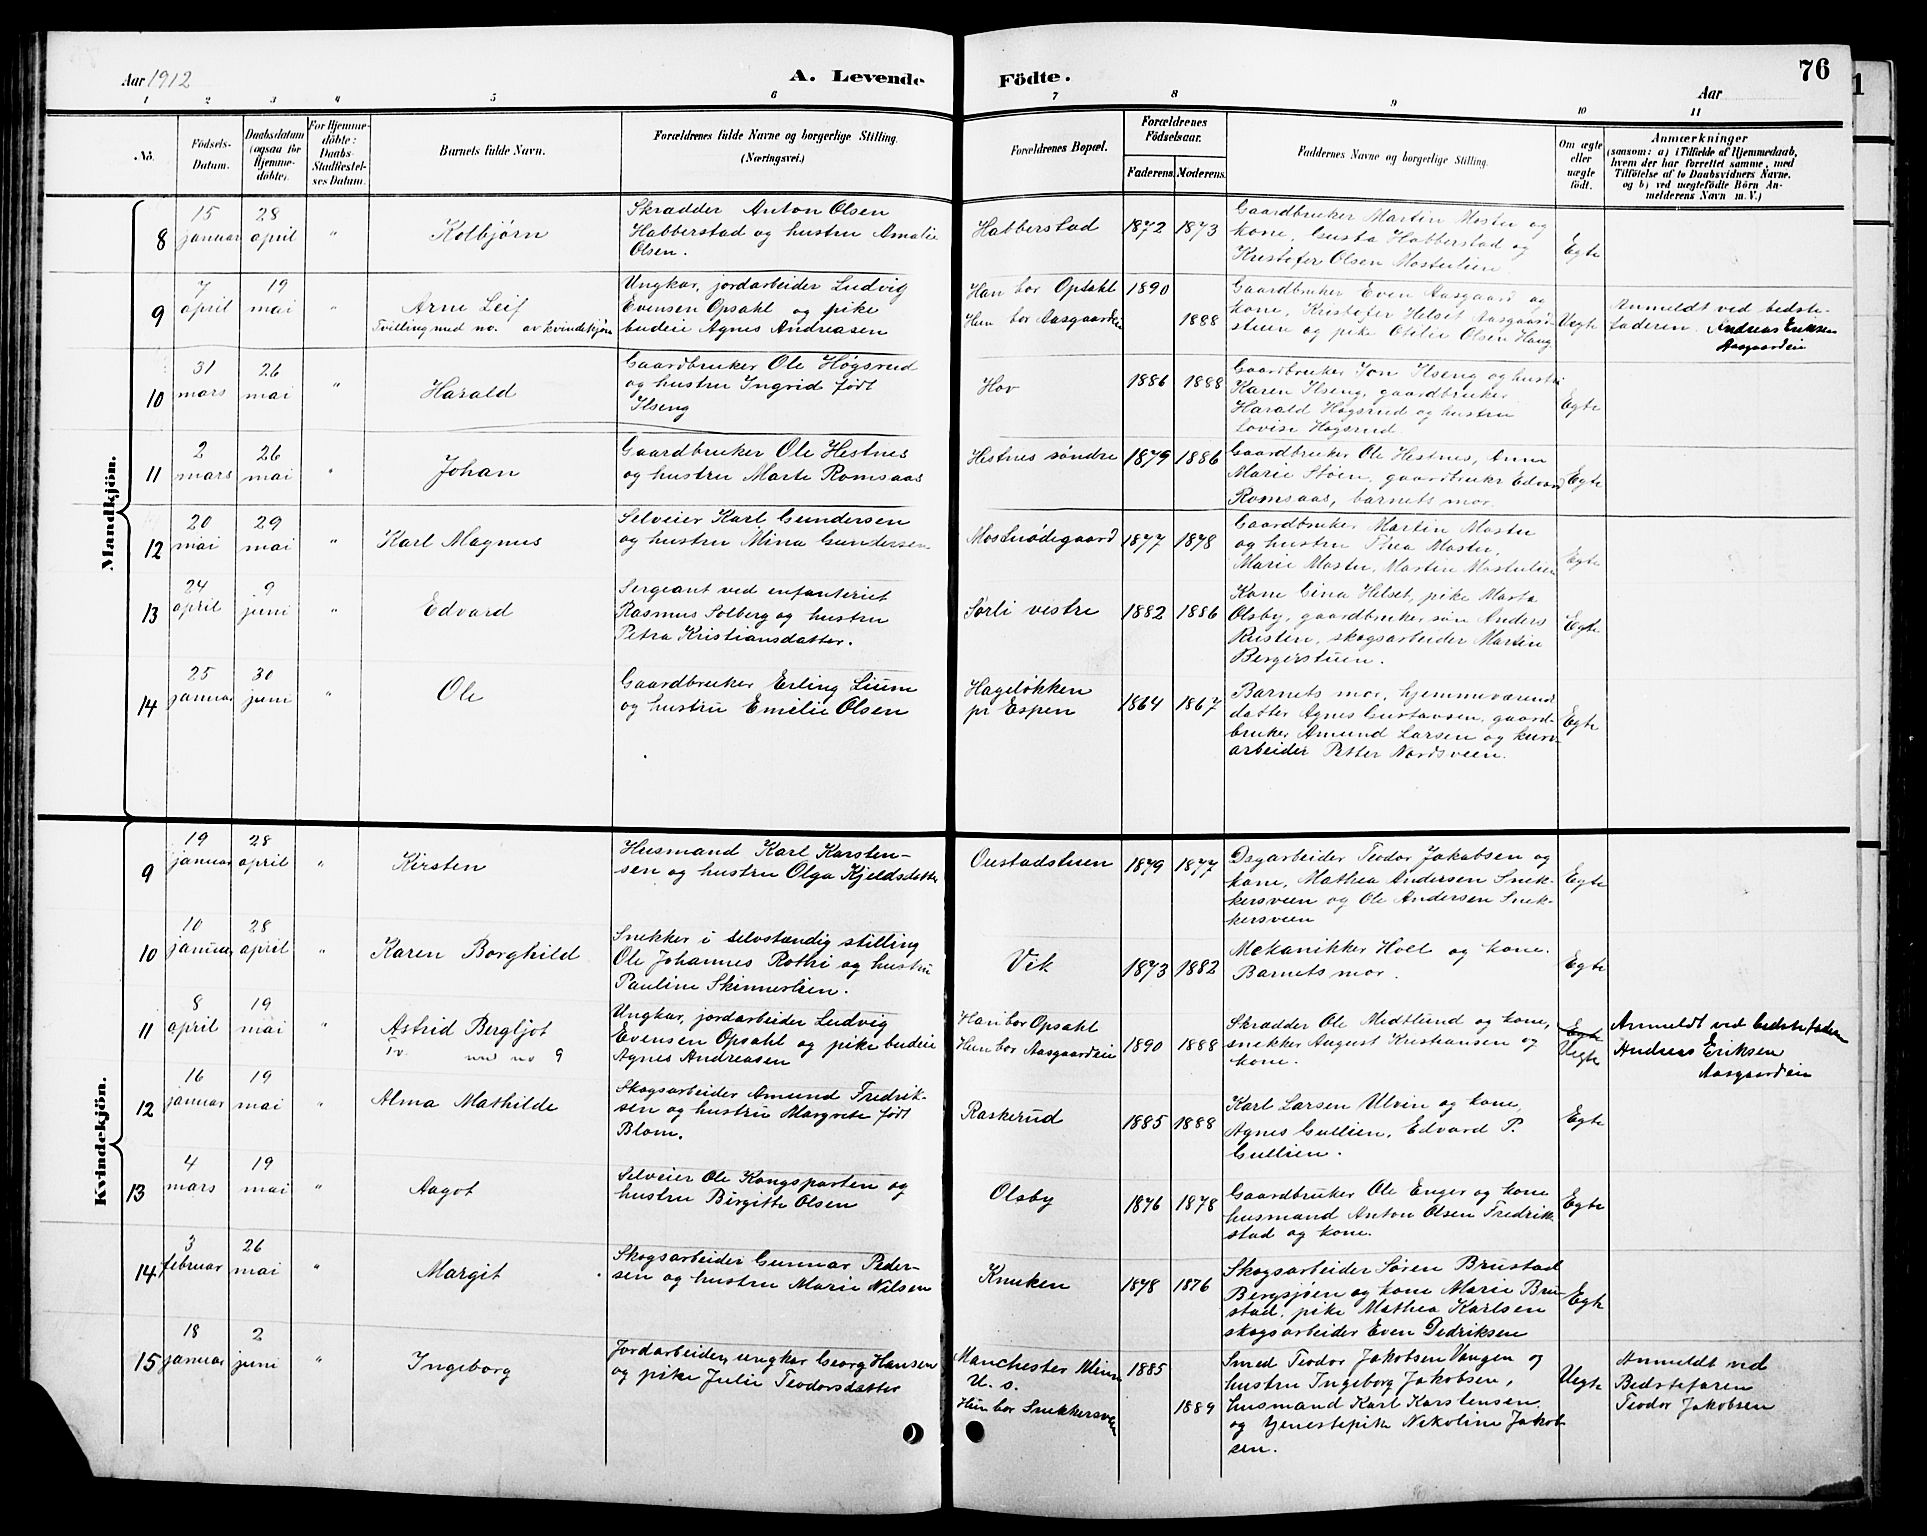 Aar 1912
A. Levende Födte.
Aar
76
1 2 3 4 5 6 7 8 9 10 11
No.
Födsels-Datum.
Daabsdatum (ogsaa for Hjemme-döbte).
For Hjemme-döbte: Daabs-Stadfæstel-ses Datum.
Barnets fulde Navn.
Forældrenes fulde Navne og borgerlige Stilling.
(Næringsvei.)
Forældrenes Bopæl.
Forældrenes Födselsaar.
Faderens. Moderens.
Faddernes Navne og borgerlige Stilling.
Om ægte eller uægte födt.
Anmærkninger
(saasom: a) i Tilfælde af Hjemmedaab,
hvem der har forrettet samme, med
Tilföielse af to Daabsvidners Navne.
og b) ved uægtefödte Börn An-
melderens Navn m. V.)
Mandkjön.
8
15 januar
28 april
"
Kolbjørn
Skrædder Anton Olsen
Habberstad og hustru Amalie
Olsen.
Habberstad
1872 1873
Gaardbruker Martin Moster og
kone, Gusta Habberstad og
Kristofer Olsen Mosterlien
Egte
9
7 april
19 mai
"
Arne Leif
Tvilling med no. av kvindekjøn
Ungkar, jordarbeider Ludvig
Evensen Opsahl og pike
budeie Agnes Andreasen
Han bor Opsahl
Hun bor Aasgaardeie
1890
1888
Gaardbruker Even Aasgaard og
kone, Kristofer Helset Aasgaard-
stuen og pike Otilie Olsen Haug
Uegte
Anmeldt ved bedste-
faderen. Andreas Eriksen
Aasgaardeie
10
31 mars
26 mai
"
Harald
Gaardbruker Ole Høgsrud
og hustru Ingrid født
Ilseng
Hov
1886 1888
Gaardbruker Jon Ilseng og hustru
Karen Ilseng, gaardbruker
Harald Høgsrud og hustru
Lovise Høgsrud.
Egte
11
2 mars
26 mai
"
Johan
Gaardbruker Ole Hestnes
og hustru Marte Romsaas
Hestnes søndre
1879 1886
Gaardbruker Ole Hestnes, Anne
Marie Støen, gaardbrukr Edvard
Romsaas, barnets mor.
Egte
12
20 mai
29 mai
"
Karl Magnus
Selveier Karl Gundersen
og hustru Mina Gundersen
Mostuødegaard
1877 1878
Gaardbruker Martin Moster
og hustru Thea Moster,
Marie Moster, Martin Mosterlien
Egte
13
24 april
9 juni
"
Edvard
Sergeant ved infanteriet
Rasmus Solberg og hustru
Petra Kristiansdatter.
Sørli vestre
1882 1886
Kone Gina Helset, pike Marta
Olsby, gaardbruker søn Anders
Rusten, skogsarbeider Martin
Bergerstuen.
Egte
14
25 januar
30 juni
"
Ole
Gaardbruker Erling Lium
og hustru Emelie Olsen
Hageløkken
pr Espen
1864 1867
Barnets mor, hjemmeværend
datter Agnes Gustavsen, gaard-
bruker Amund Larsen og kurv-
arbeider Petter Nordsveen.
Egte
Kvindekjön.
9
19 januar
28 april
"
Kirsten
Husmand Karl Karsten-
sen og hustru Olga Kjeldsdatter
Ouestadstuen
1879 1877
Dagarbeider Teodor Jakobsen og
kone, Mathea Andersen Snek-
kersveen og Ole Andersen Snek-
kersveen
Egte
10
10 januar
28 april
"
Karen Borghild
Snekker i selvstændig stilling
Ole Johannes Rothi og hustru
Pauline Skinnerlien.
Vik
1873 1882
Mekanikker Hoel og kone.
Barnets mor.
Egte
11
8 april
19 mai
"
Astrid Bergljot
Tv. med no 9
Ungkar, jordarbeider Ludvig
Evensen Opsahl og pike budeie
Agnes Andreasen
Han bor Opsahl
Hun bor Aasgaardeie
1890 1888
Skrædder Ole Midtlund og kone,
snekker August Kristiansen og
kone.
Egte
Uegte
Anmeldt ved bedstefader
Andreas Eriksen
Aasgaardeie
12
16 januar
19 mai
"
Alma Mathilde
Skogsarbeider Amund Fredrik-
sen og hustru Margrete født
Blom.
Raskerud
1885 1888
Karl Larsen Ulvin og kone,
Agnes Gullien, Edvard P.
Gullien.
Egte
13
4 mars
19 mai
"
Aagot
Selveier Ole Kongsparten og
hustru Birgitte Olsen
Olsby
1876 1878
Gaardbruker Ole Enger og kone
husmand Anton Olsen Fredrik-
stad og kone.
Egte
14
3 februar
26 mai
"
Margit
Skogsarbeider Gunnar Peder-
sen og hustru Marie Nilsen
Knuken
1878 1876
Skogsarbeider Søren Brustad
Bergsjøen og kone Marie Bru-
stad, pike Mathea Karlsen
skogsarbeider Even Dedriksen
Egte
15
18 januar
2 juni
"
Ingeborg
Jordarbeider, ungkar Georg Hansen
og pike Julie Teodorsdatter
Manchester Minn
U. S.
Hun bor Snekkersveen
1885
1889
Smed Teodor Jakobsen Vangen og
hustru Ingeborg Jakobsen,
husmand Karl Karstensen
og tjenestepike Nikoline Jakob-
sen.
Uegte
Anmeldt ved
Bedstefaren
Teodor Jakobsen